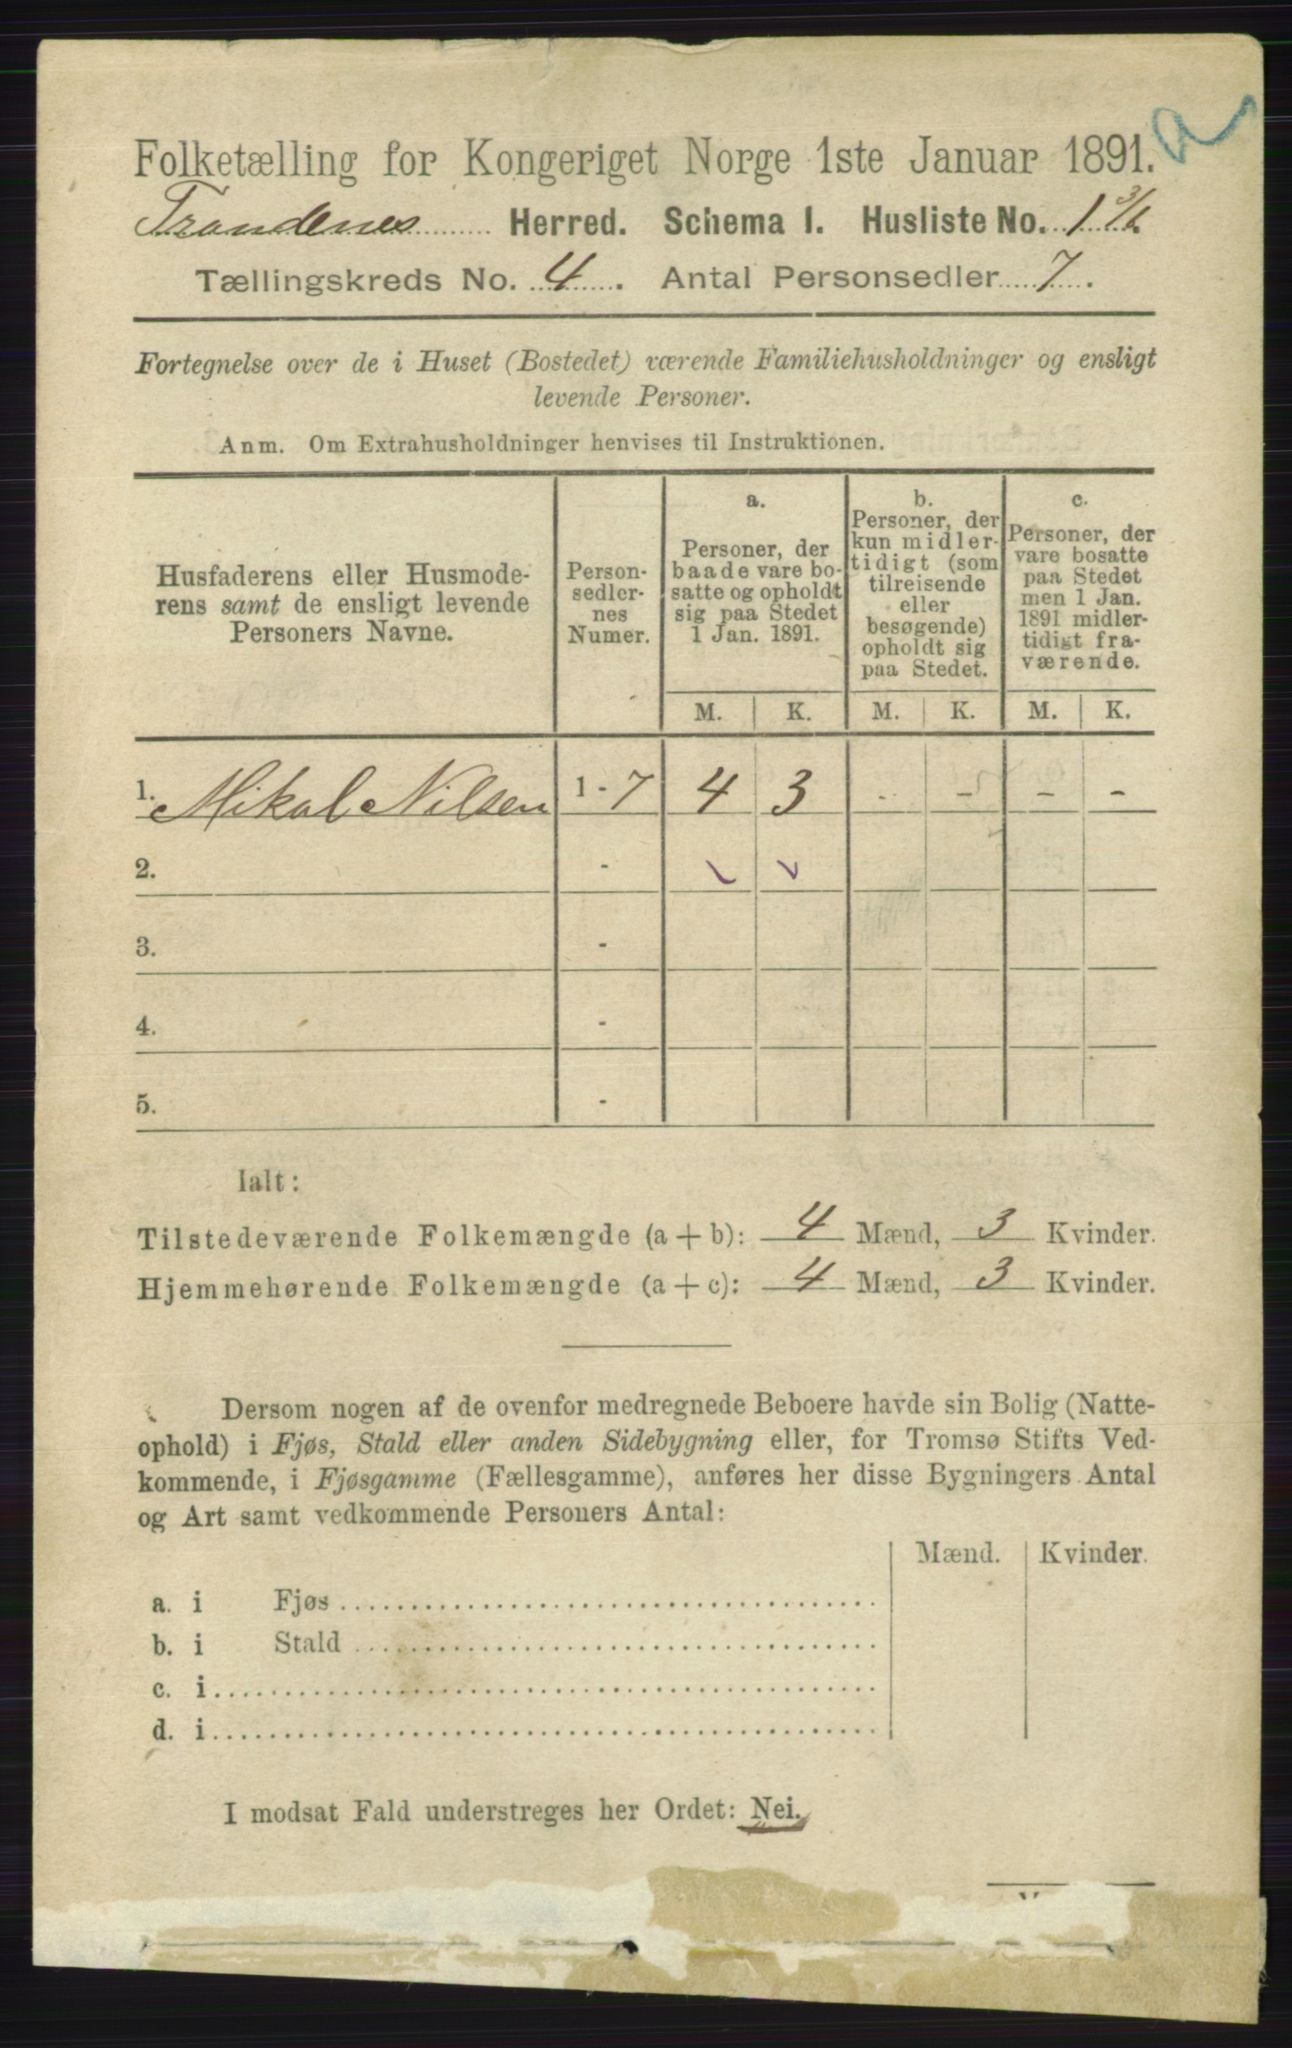 Folketælling for Kongeriget Norge 1ste Januar 1891.
Trondenes Herred. Schema I. Husliste No. 1
Tællingskreds No. 4. Antal Personsedler 7.
Fortegnelse over de i Huset (Bostedet) værende Familiehusholdninger og ensligt
levende Personer.
Anm. Om Extrahusholdninger henvises til Instruktionen.
Husfaderens eller Husmode-
rens samt de ensligt levende
Personers Navne.
Person-
sedler-
nes
Numer.
a.
Personer, der
baade vare bo-
satte og opholdt
sig paa Stedet
1 Jan. 1891.
b.
Personer, der
kun midler-
tidigt (som
tilreisende
eller
besøgende)
opholdt sig
paa Stedet.
c.
Personer, der
vare bosatte
paa Stedet
men 1 Jan.
1891 midler-
tidigt fra-
værende.
M. K. M. K. M. K.
1. Mikal Nilsen 1 - 7 4 3 - - - -
2. -
3. -
4. -
5. -
Ialt:
Tilstedeværende Folkemængde (a + b): 4 Mænd, 3 Kvinder.
Hjemmehørende Folkemængde (a + c): 4 Mænd, 3 Kvinder.
Dersom nogen af de ovenfor medregnede Beboere havde sin Bolig (Natte-
ophold) i Fjøs, Stald eller anden Sidebygning eller, for Tromsø Stifts Ved-
kommende, i Fjøsgamme (Fællesgamme), anføres her disse Bygningers Antal
og Art samt vedkommende Personers Antal:
Mænd. Kvinder.
a. i Fjøs
b. i Stald
c. i
d. i
I modsat Fald understreges her Ordet: Nei.